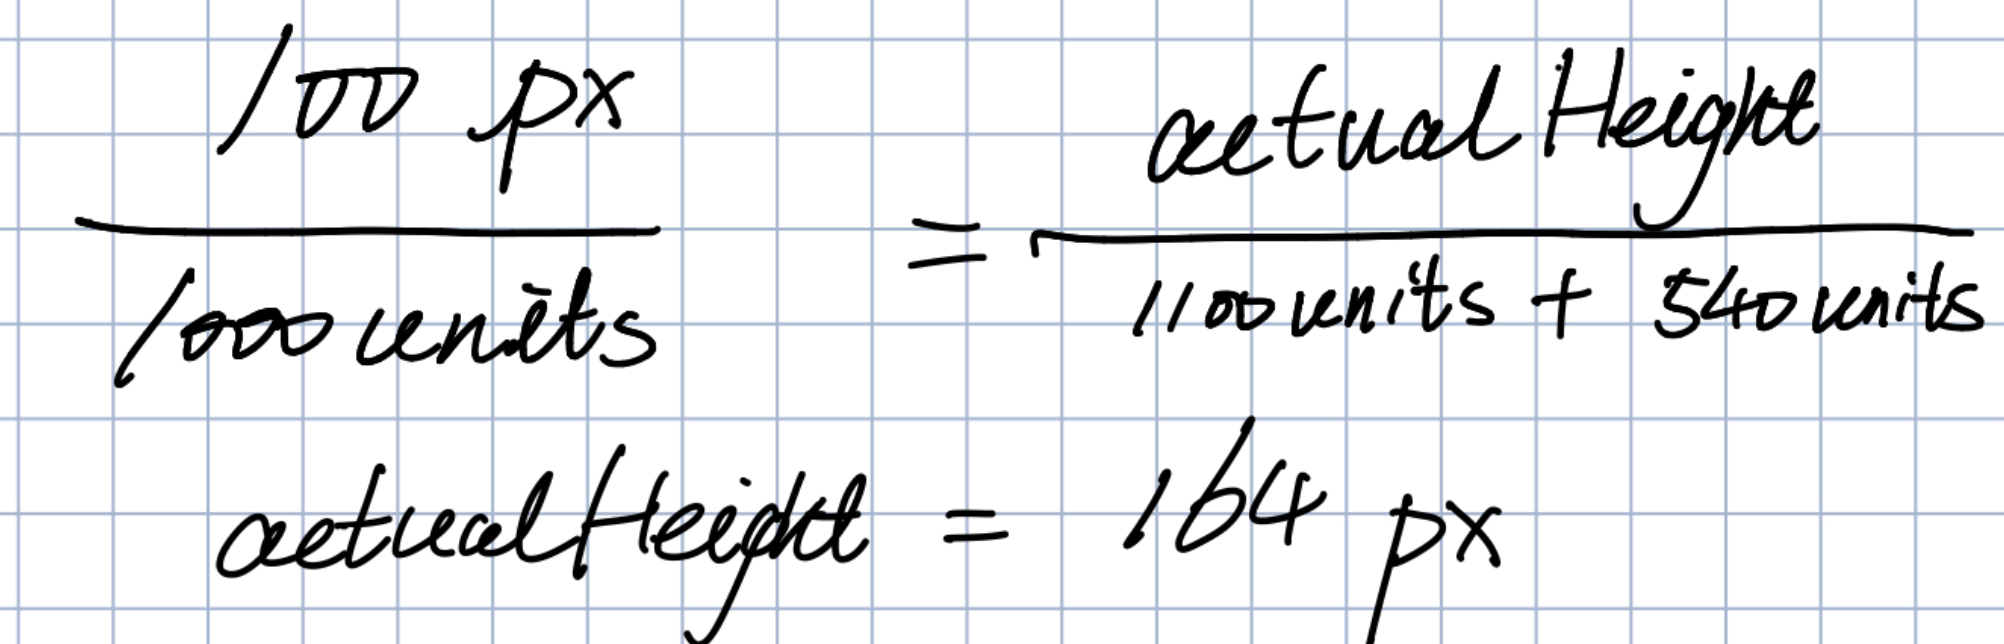 100 px / 1000 units = actual Height / 1100 units + 540 units
actual Height = 164 px